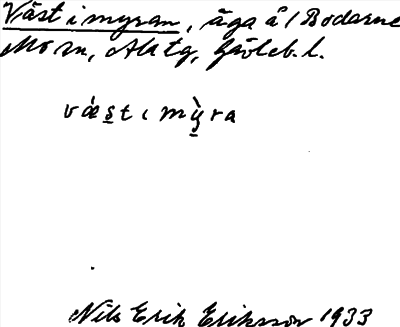 Väst i myran, äga å / Bodarne
Mo sn, Ala tg, Gävleb. l.
væs̲t ı mỳ̲ra
Nils Erik Eriksson 1933